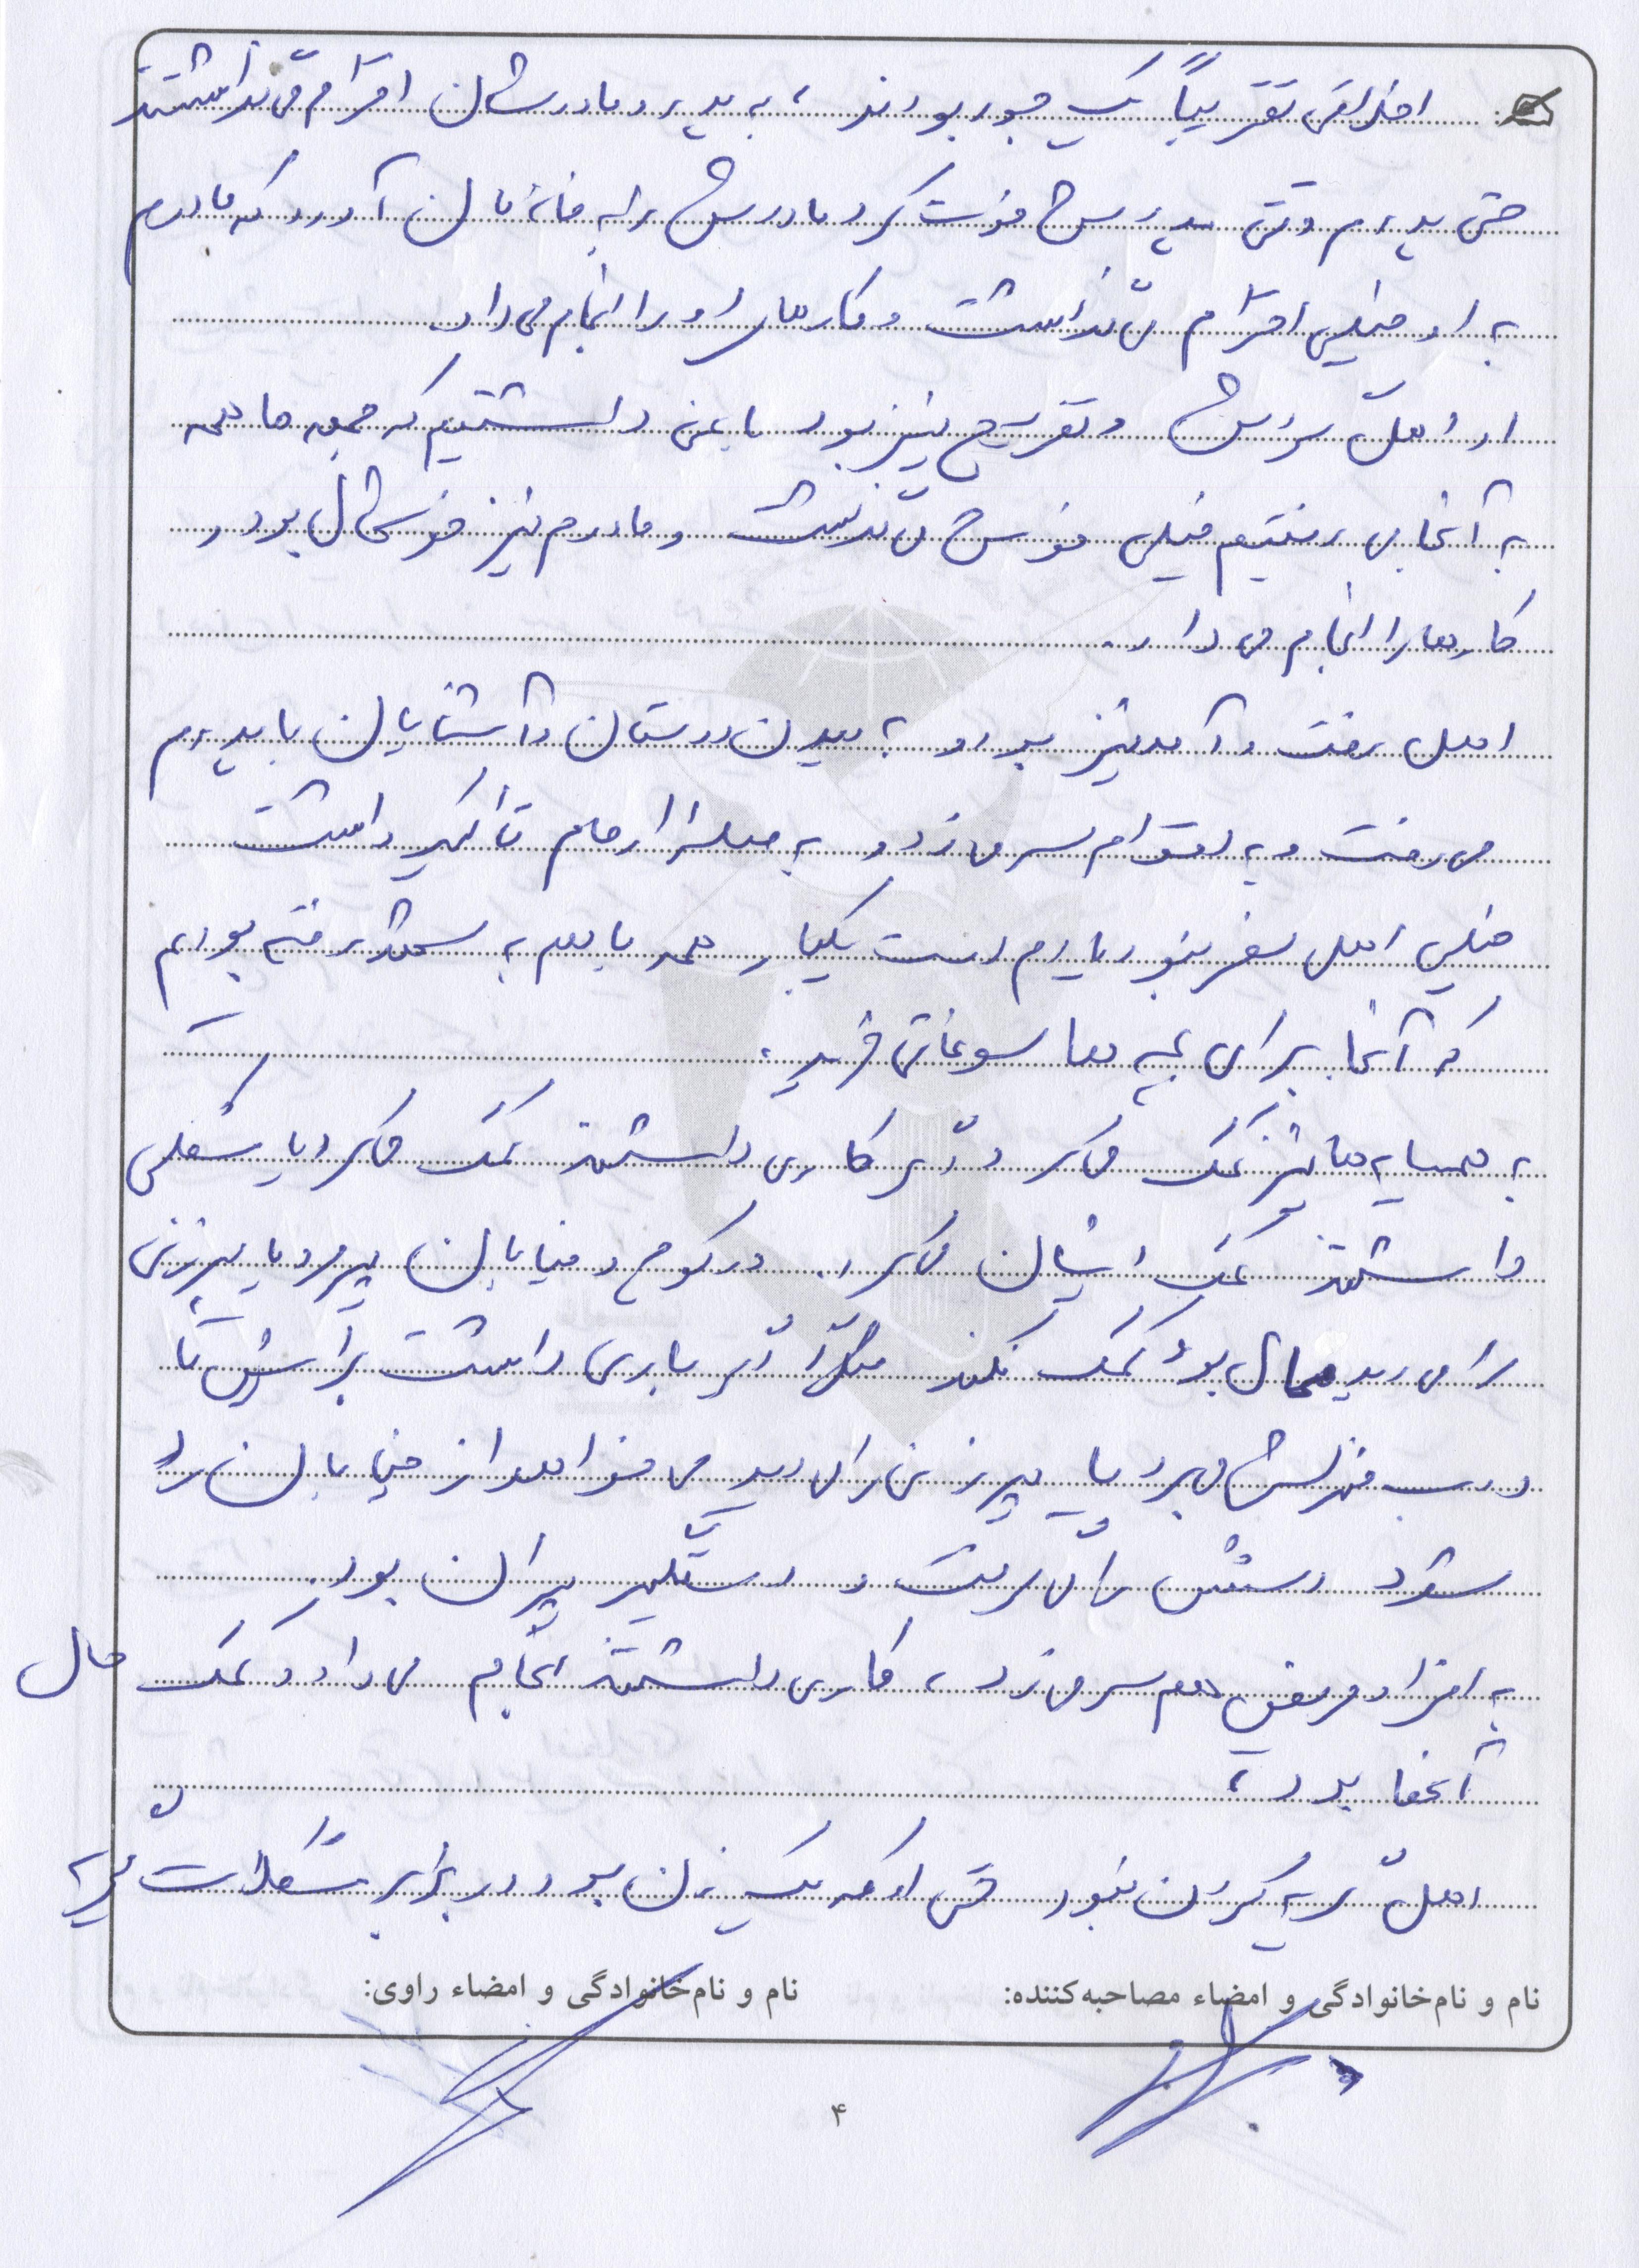 اخلاقی تقریباً یک جور بودند، به پدر و مادرشان احترام می گذاشتند
حتی پدرم وقتی پدرش فوت کرد مادرش را به خانه مان آورد که مادرم
به او خیلی احترام می گذاشت و کارهای او را انجام می داد
او اهل گردش و تفریح نیز بود باغی داشتیم که جمعه ها همه
به آنجا می رفتیم خیلی خوش می گذشت و مادرم نیز خوشحال بود و
کارها را انجام می داد.
اهل رفت و آمد نیز بود و به دیدن دوستان و آشنایان با پدرم
می رفت و به اقوام سر می زد و به صله ارحام تاکید داشت
خیلی اهل سفر نبود یادم است یکبار همه با هم به مشهد رفته بودیم
که آنجا برای بچه ها سوغاتی خرید.
به همسایه ها نیز کمک می کرد و اگر کاری داشتند کمک می کرد یا مشکلی
داشتند کمک ایشان می کرد. در کوچه و خیابان پیرمرد یا پیرزنی
را می دید محال بود کمک نکند مثلاً اگر باری داشت برایش تا
درب منزلش می برد یا پیرزنی را می دید می خواهد از خیابان رد
شود دستش را می گرفت و دستگیر پیران بود.
به افراد مریض هم سر می زد، کاری داشتند انجام می داد و کمک حال
آنها بود،
اهل گریه کردن نبود حتی او که یک زن بود در برابر مشکلات گریه
نام و نام‌خانوادگی و امضاء مصاحبه‌کننده:
نام و نام‌خانوادگی و امضاء راوی:
۴